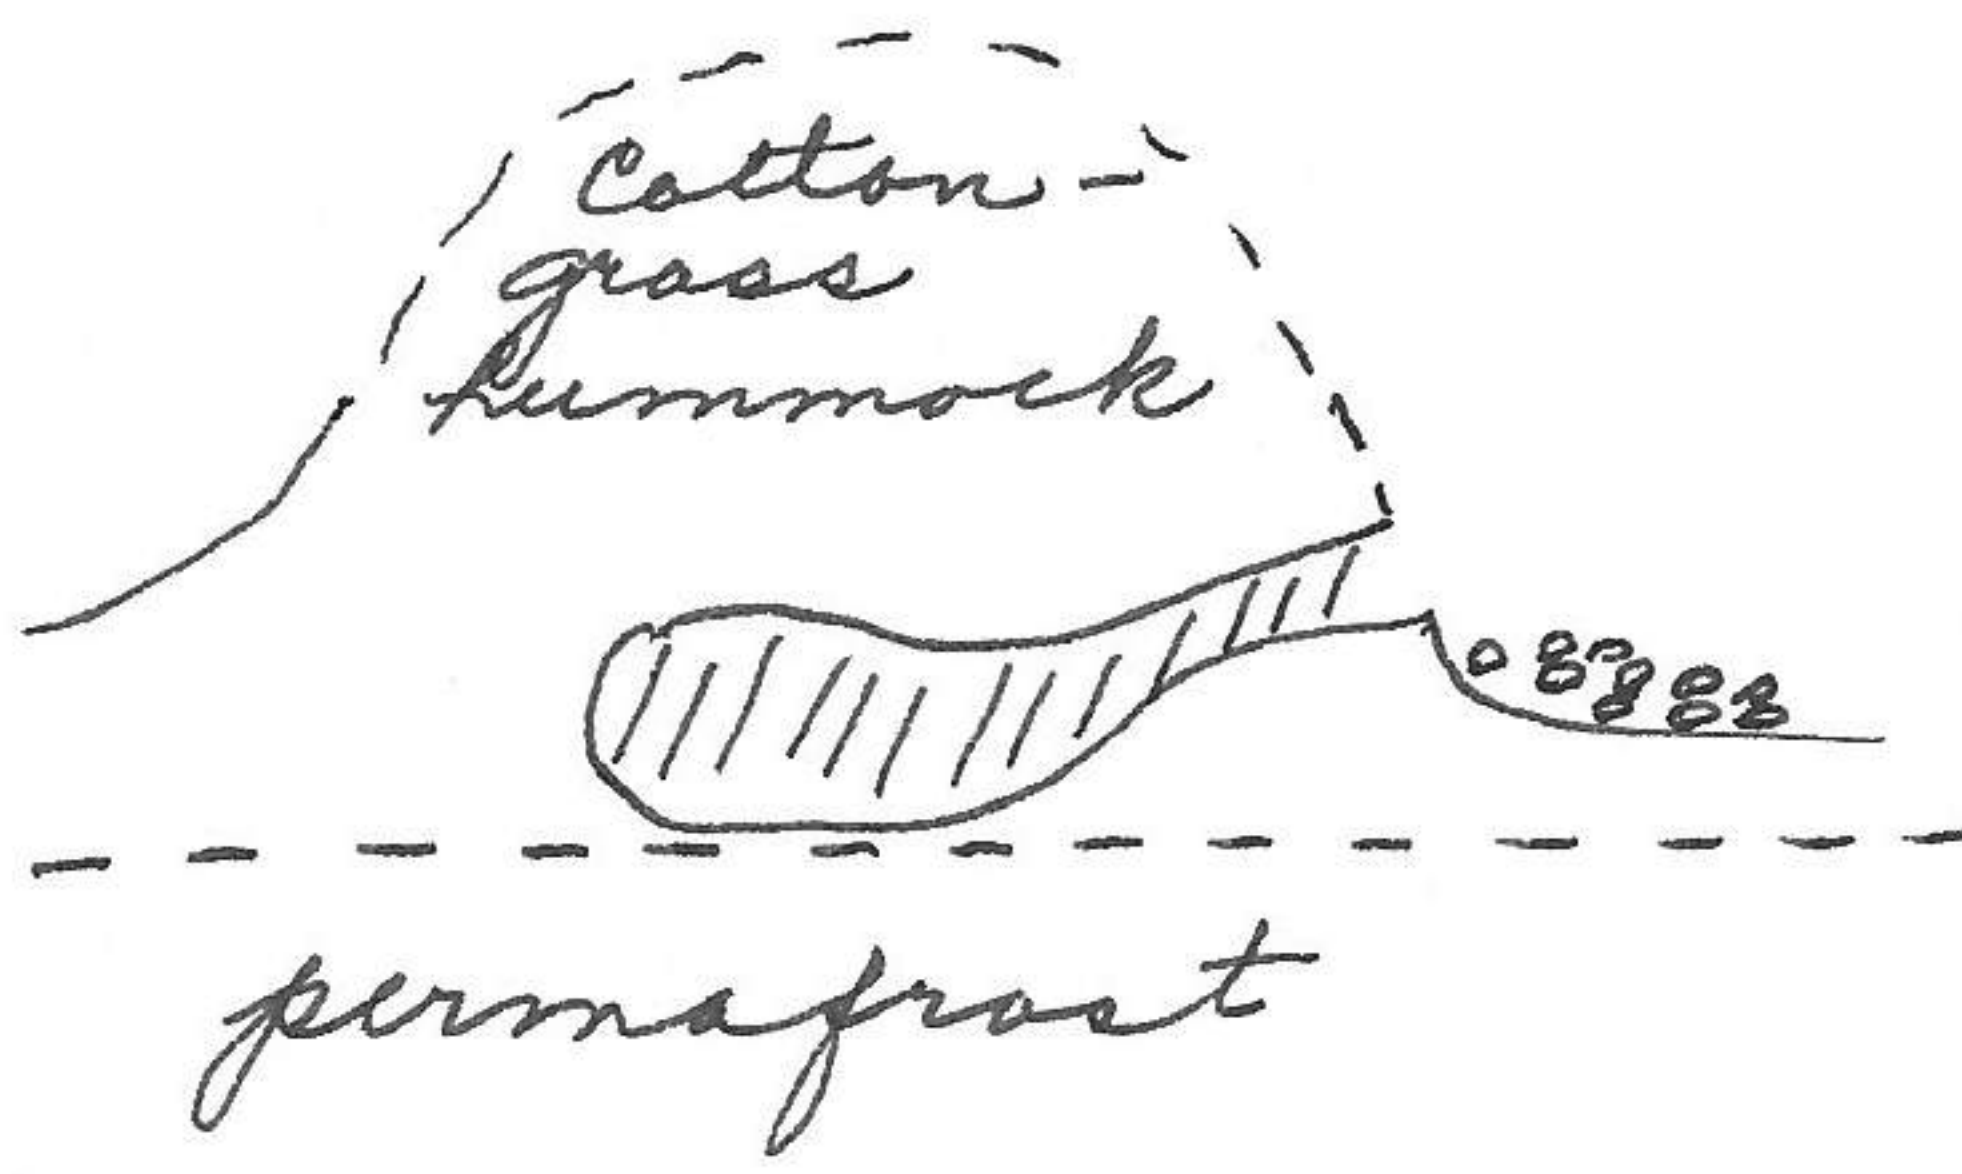 Cotton-
grass
hummock
permafrost